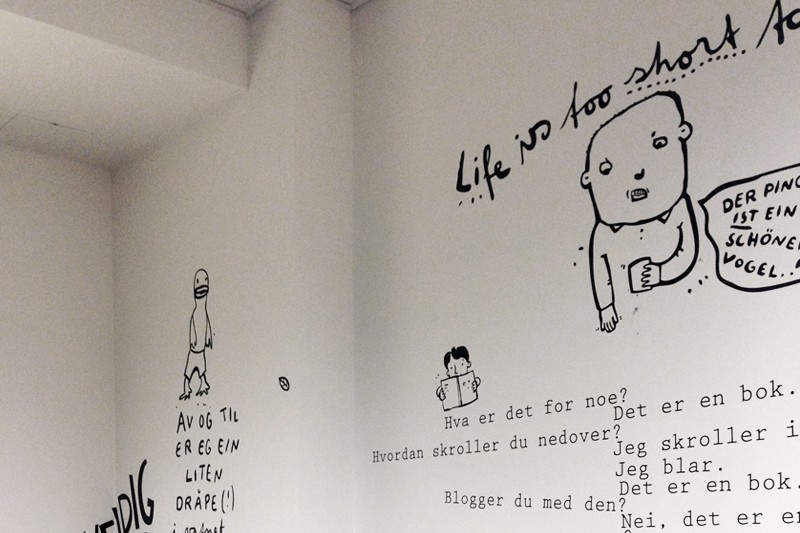 Life is too short
DER PING
IST EIN
SCHÖNER
VOGEL..
Hva er det for noe?
Det er en bok.
Hvordan skroller du nedover?
Jeg skroller i
Jeg blar.
Det er en bok.
Blogger du med den?
Nei, det er en
AV OG TIL
ER EG EIN
LITEN
DRÅPE(!)